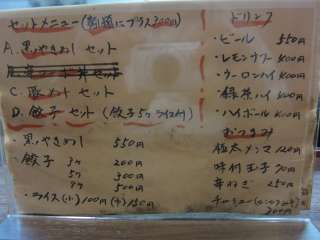 セットメニュー(麺道にプラス200円)
A. 黒いやきめし セット
C. 豚めし セット
D. 餃子 セット (餃子5ケ ライス付)
・黒いやきめし 550円
・餃子 3ケ 200円
5ケ 300円
9ケ 500円
・ライス (小) 100円 (中) 150円
ドリンク
・ビール 550
・レモンサワー 400円
・ウーロンハイ 400円
・緑茶ハイ 400円
・ハイボール 400円
おつまみ
極太メンマ 120円
味付玉子 70円
辛ねぎ 250円
チャーシュー
300円